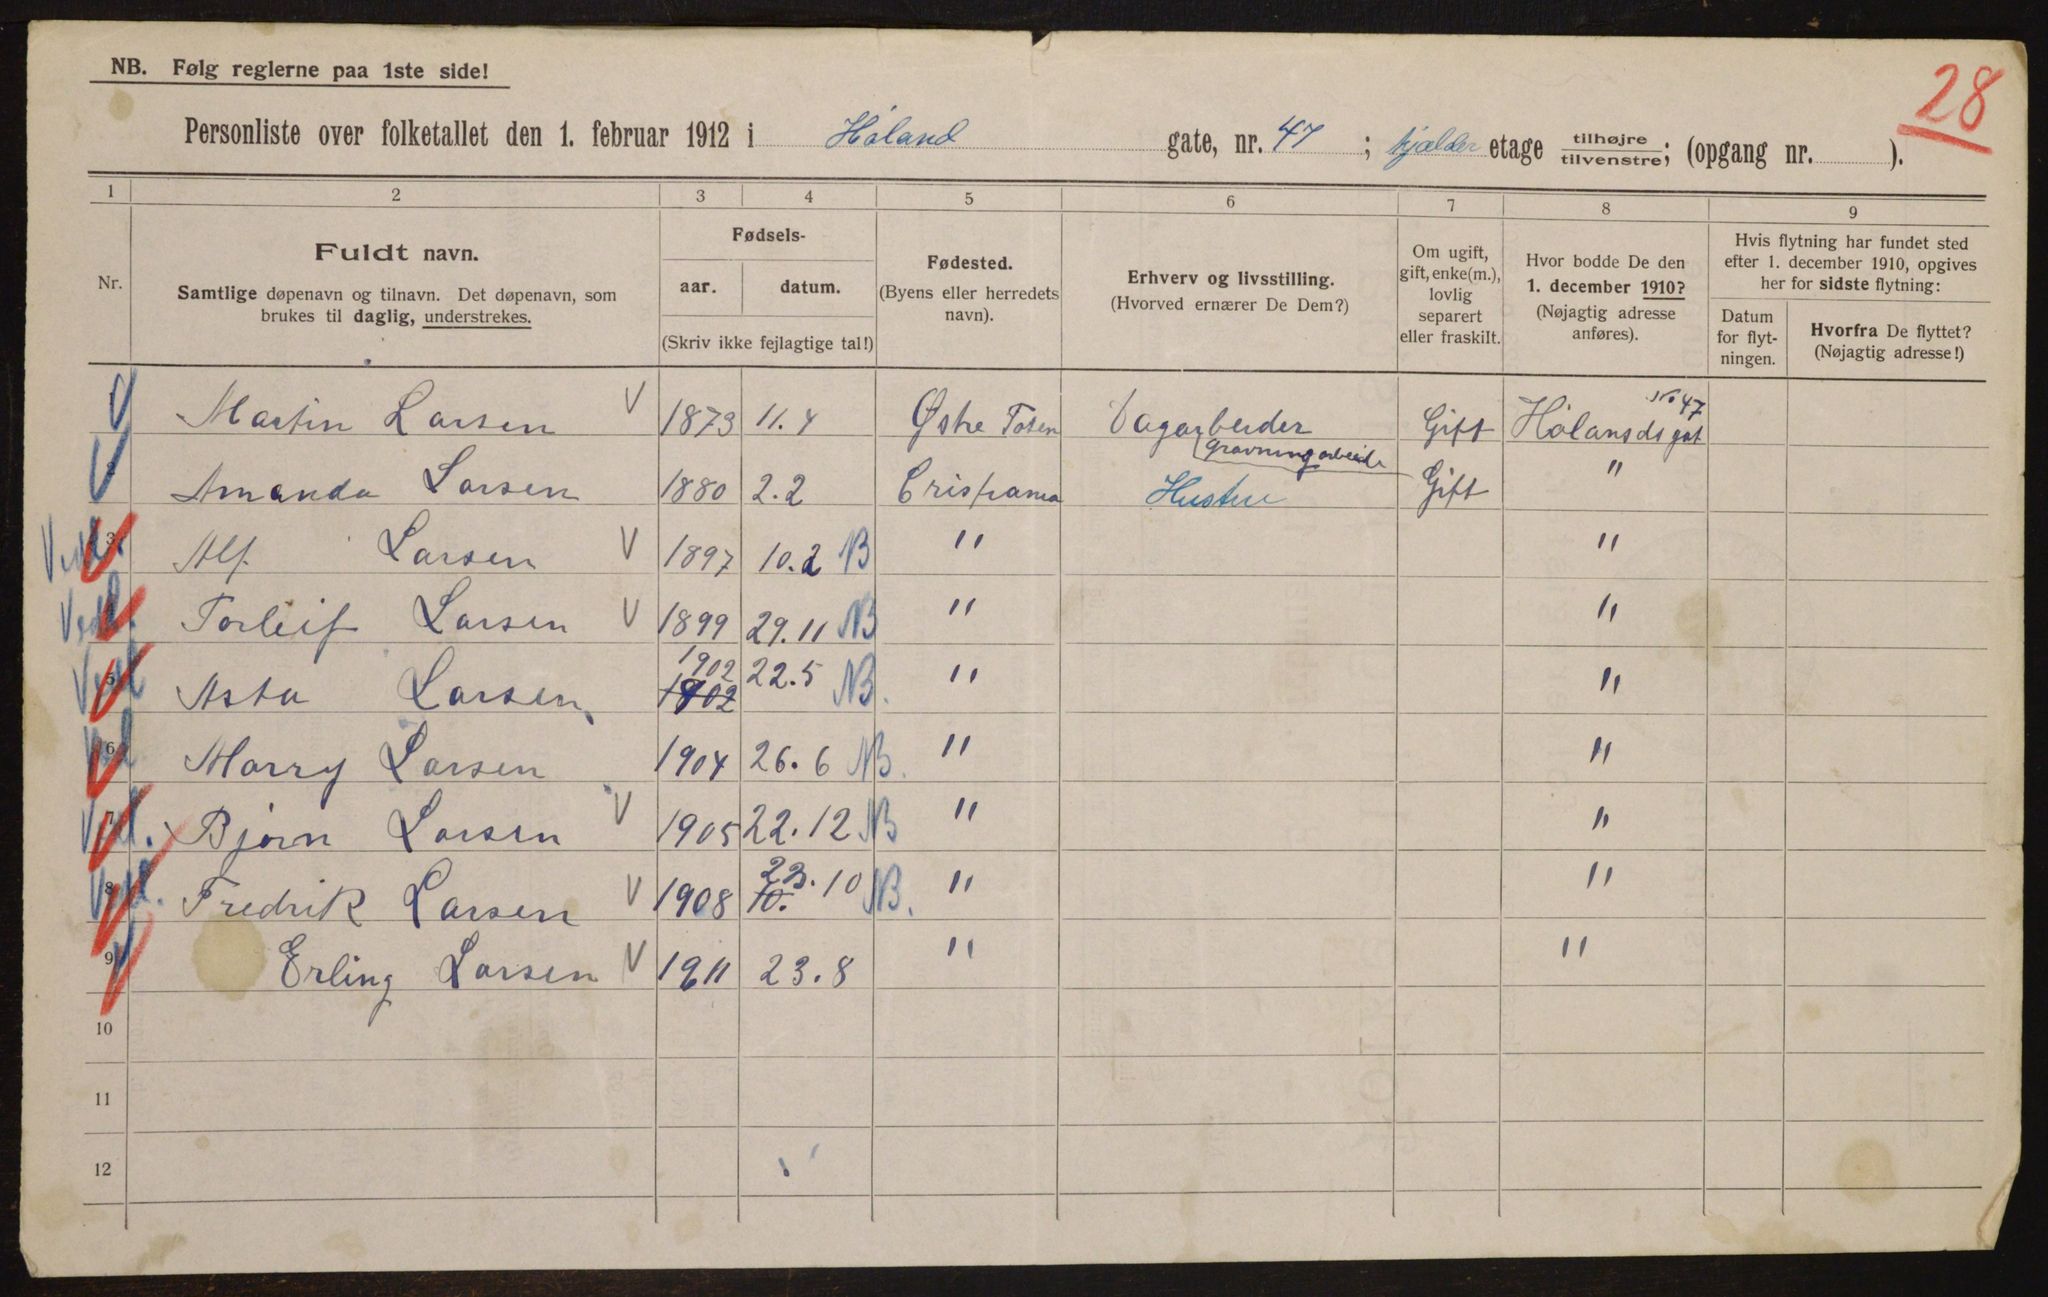 NB. Følg reglerne paa 1ste side!
28
Personliste over folketallet den 1. februar 1912 i Høland gate, nr. 47 ; kjælder etage tilhøjre tilvenstre; (opgang nr. ).
1 2 3 4 5 6 7 8 9
Nr.
Fuldt navn.
Samtlige døpenavn og tilnavn. Det døpenavn, som
brukes til daglig, understrekes.
Fødsels-
aar. datum.
(Skriv ikke fejlagtige tal!)
Fødested.
(Byens eller herredets
navn).
Erhverv og livsstilling.
(Hvorved ernærer De Dem?)
Om ugift,
gift, enke(m.),
lovlig
separert
eller fraskilt.
Hvor bodde De den
1. december 1910?
(Nøjagtig adresse
anføres).
Hvis flytning har fundet sted
efter 1. december 1910, opgives
her for sidste flytning:
Datum
for flyt-
ningen.
Hvorfra De flyttet?
(Nøjagtig adresse!)
No 47
Martin Larsen V 1873 11.4 Østre Toten Vagarbeider Gift Hølansdsgat
gravning arbeide
2 Amanda Larsen 1880 2.2 Cristiania Hustru Gift "
3 Alf. Larsen V 1897 10.2 NB " "
Torleif Larsen V 1899 29.11 NB " "
1902
5 Asta Larsen, 1902 22.5 NB. " "
6 Marry Larsen 1904 26.6 NB. " "
7 Bjørn Larsen V 1905 22.12 NB " "
23.
8 Fredrik Larsen V 1908 10. 10 NB. " "
9 Erling Larsen V 1911 23.8 " "
10
11
12